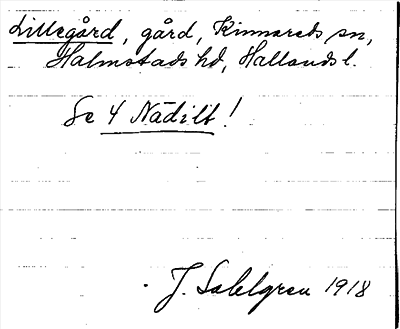 Lillegård, gård, Kinnareds sn,
Halmstads hd, Hallands l.
Se 4 Nädilt!
J. Sahlgren 1918